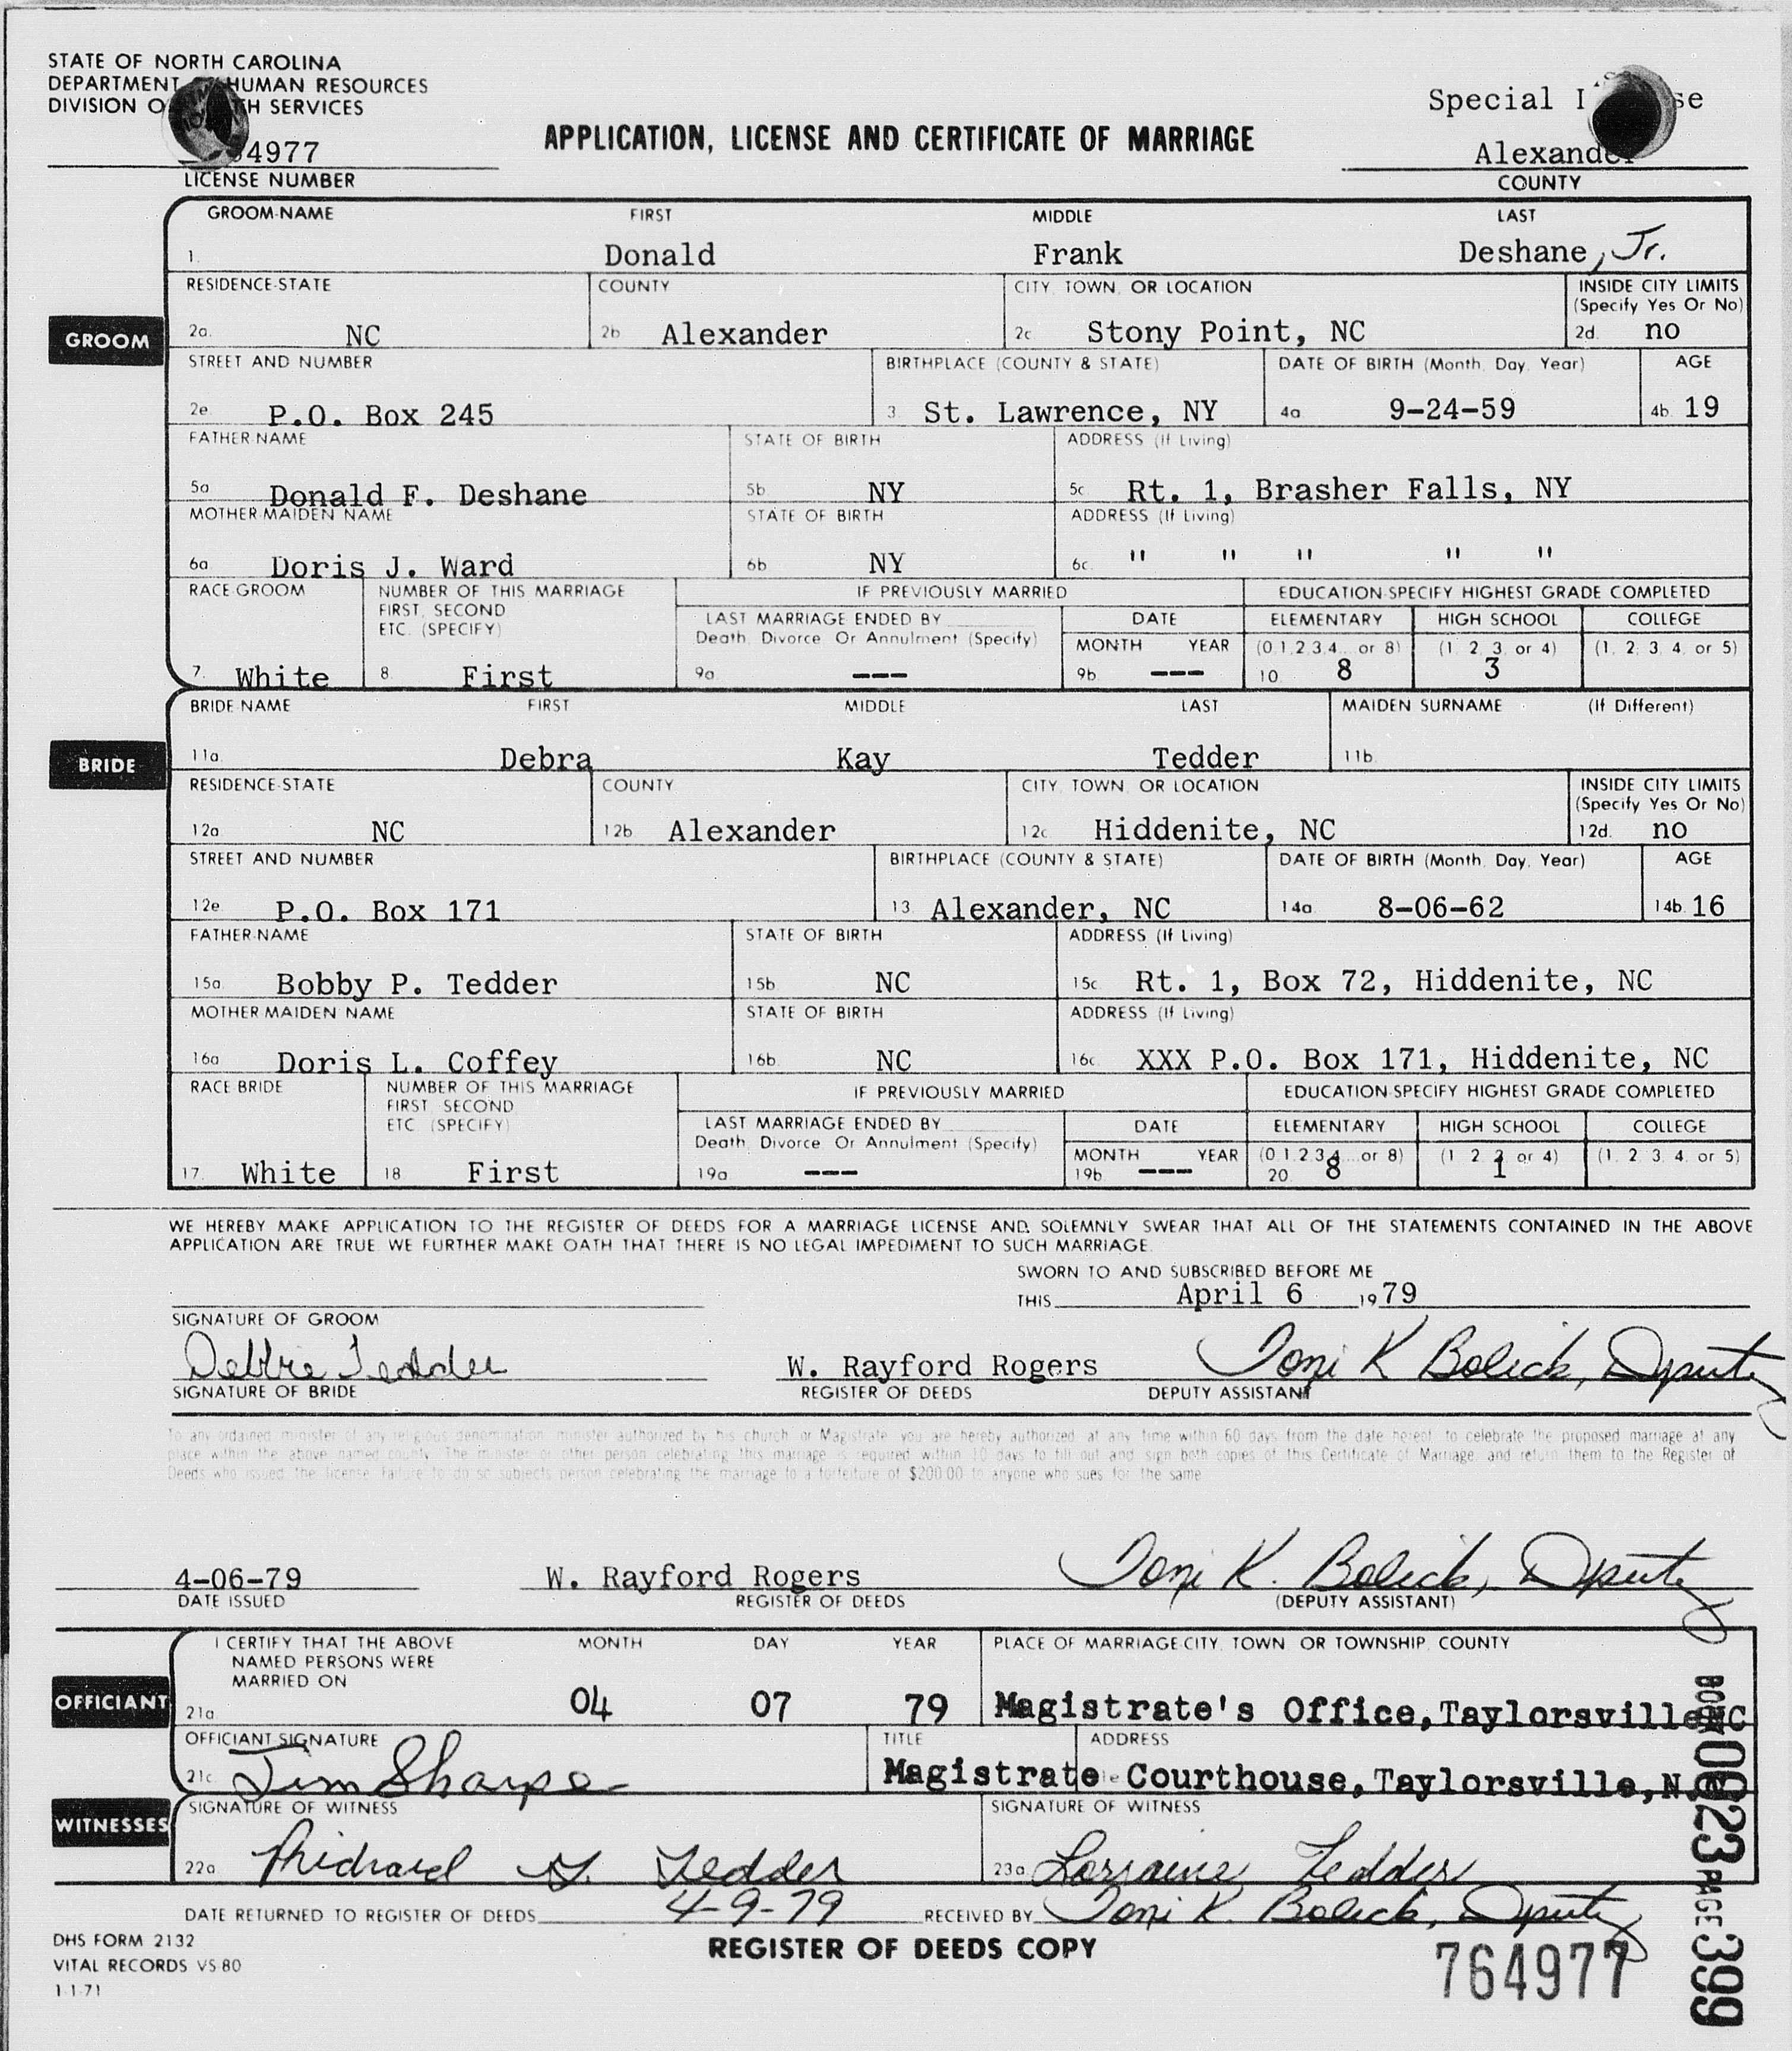 STATE OF NORTH CAROLINA
DEPARTMENT HUMAN RESOURCES
DIVISION O TH SERVICES
Special
4977
LICENSE NUMBER
APPLICATION, LICENSE AND CERTIFICATE OF MARRIAGE
Alexander
COUNTY
GROOM
GROOM-NAME FIRST MIDDLE LAST
1. Donald Frank Deshane, Jr.
RESIDENCE-STATE COUNTY CITY, TOWN, OR LOCATION INSIDE CITY LIMITS
(Specify Yes Or No)
2a. NC 2b Alexander 2c Stony Point, NC 2d. no
STREET AND NUMBER BIRTHPLACE (COUNTY & STATE) DATE OF BIRTH (Month, Day, Year) AGE
2e P.O. Box 245 3. St. Lawrence, NY 4a 9-24-59 4b. 19
FATHER-NAME STATE OF BIRTH ADDRESS (If Living)
5a Donald F. Deshane 5b NY 5c Rt. 1, Brasher Falls, NY
MOTHER-MAIDEN NAME STATE OF BIRTH ADDRESS (If Living)
6a Doris J. Ward 6b NY 6c. " " " " "
RACE-GROOM NUMBER OF THIS MARRIAGE IF PREVIOUSLY MARRIED EDUCATION-SPECIFY HIGHEST GRADE COMPLETED
FIRST, SECOND LAST MARRIAGE ENDED BY DATE ELEMENTARY HIGH SCHOOL COLLEGE
ETC. (SPECIFY) Death, Divorce, Or Annulment (Specify) MONTH YEAR (0,1,2,3,4... or 8) (1, 2, 3, or 4) (1, 2, 3, 4, or 5)
7. White 8. First 9a --- 9b --- 10. 8 3
BRIDE
BRIDE-NAME FIRST MIDDLE LAST MAIDEN SURNAME (If Different)
11a Debra Kay Tedder 11b
RESIDENCE-STATE COUNTY CITY, TOWN, OR LOCATION INSIDE CITY LIMITS
(Specify Yes Or No)
12a NC 12b Alexander 12c. Hiddenite, NC 12d. no
STREET AND NUMBER BIRTHPLACE (COUNTY & STATE) DATE OF BIRTH (Month, Day, Year) AGE
12e P.O. Box 171 13. Alexander, NC 14a. 8-06-62 14b. 16
FATHER-NAME STATE OF BIRTH ADDRESS (If Living)
15a Bobby P. Tedder 15b NC 15c Rt. 1, Box 72, Hiddenite, NC
MOTHER-MAIDEN NAME STATE OF BIRTH ADDRESS (If Living)
16a Doris L. Coffey 16b NC 16c XXX P.O. Box 171, Hiddenite, NC
RACE-BRIDE NUMBER OF THIS MARRIAGE IF PREVIOUSLY MARRIED EDUCATION-SPECIFY HIGHEST GRADE COMPLETED
FIRST, SECOND LAST MARRIAGE ENDED BY DATE ELEMENTARY HIGH SCHOOL COLLEGE
ETC. (SPECIFY) Death, Divorce, Or Annulment (Specify) MONTH YEAR (0,1,2,3,4... or 8) (1, 2, 3, or 4) (1, 2, 3, 4, or 5)
17. White 18 First 19a --- 19b. --- 20. 8 1
WE HEREBY MAKE APPLICATION TO THE REGISTER OF DEEDS FOR A MARRIAGE LICENSE AND SOLEMNLY SWEAR THAT ALL OF THE STATEMENTS CONTAINED IN THE ABOVE
APPLICATION ARE TRUE. WE FURTHER MAKE OATH THAT THERE IS NO LEGAL IMPEDIMENT TO SUCH MARRIAGE.
SWORN TO AND SUBSCRIBED BEFORE ME
THIS April 6 1979
SIGNATURE OF GROOM
Debbie Tedder W. Rayford Rogers Toni K Bolick, Deputy
SIGNATURE OF BRIDE REGISTER OF DEEDS DEPUTY ASSISTANT
To any ordained minister of any religious denomination, minister authorized by his church or Magistrate, you are hereby authorized, at any time within 60 days from the date hereof, to celebrate the proposed marriage at any
place within the above named county. The minister or other person celebrating this marriage is required within 10 days to fill out and sign both copies of this Certificate of Marriage, and return them to the Register of
Deeds who issued the license. Failure to do so subjects person celebrating the marriage to a forfeiture of $200.00 to anyone who sues for the same.
4-06-79 W. Rayford Rogers Toni K. Bolick, Deputy
DATE ISSUED REGISTER OF DEEDS (DEPUTY ASSISTANT)
OFFICIANT
I CERTIFY THAT THE ABOVE MONTH DAY YEAR PLACE OF MARRIAGE-CITY, TOWN, OR TOWNSHIP, COUNTY
NAMED PERSONS WERE
MARRIED ON
21a 04 07 79 Magistrate's Office, Taylorsville NC
OFFICIANT-SIGNATURE TITLE ADDRESS
21c Jim Sharpe Magistrate Courthouse, Taylorsville, N.
WITNESSES
SIGNATURE OF WITNESS SIGNATURE OF WITNESS
22a. Richard G. Tedder 23a Lorraine Tedder
DATE RETURNED TO REGISTER OF DEEDS 4-9-79 RECEIVED BY Toni K. Bolick, Deputy
DHS FORM 2132
VITAL RECORDS VS-80
1-1-71
REGISTER OF DEEDS COPY
764977
BOOK 0023 PAGE 399